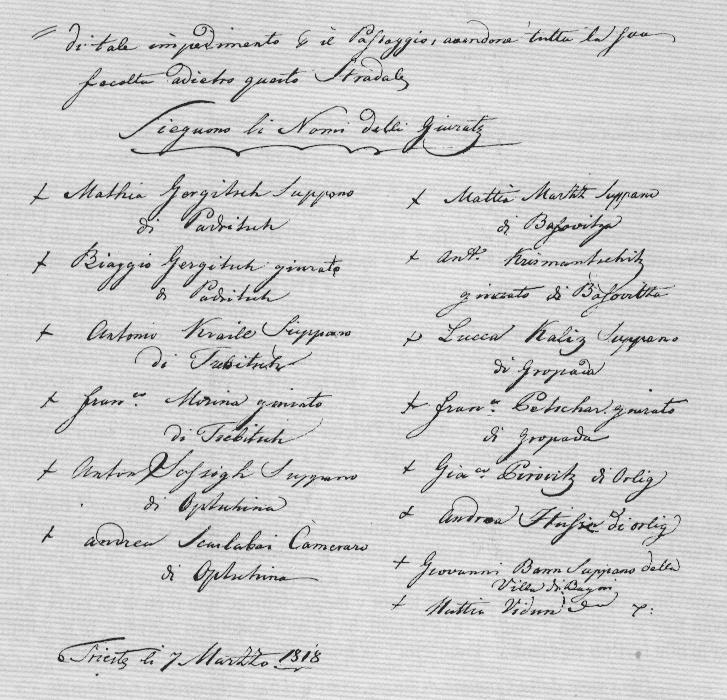 di tale impedimento è il Passaggio, avendone tutta la sua
facoltà adietro questo Stradale
Sieguono li Nomi delli Giurati
+ Mathia Gergitsch Suppano
di Padritsch
+ Biaggio Gergitsch giurato
di Padritsch
+ Antonio Kraile Suppano
di Trebitsch
+ Fran.co Morina giurato
di Trebitsch
+ Anton Sossigh Suppano
di Optschina
+ Andrea Scarlabai Cameraro
di Optschina
+ Mattia Martz Suppano
di Basovitza
+ Ant.o Krismantschitz
giurato di Basovitza
+ Lucca Kaliz Suppano
di Gropada
+ Fran.co Petschar giurato
di Gropada
+ Gia.co Pirovitz di Orlig
+ Andrea di Orlig
+ Giovanni Bann Suppano della
Villa di
+ Mattia
Trieste li 7 Marzzo 1818